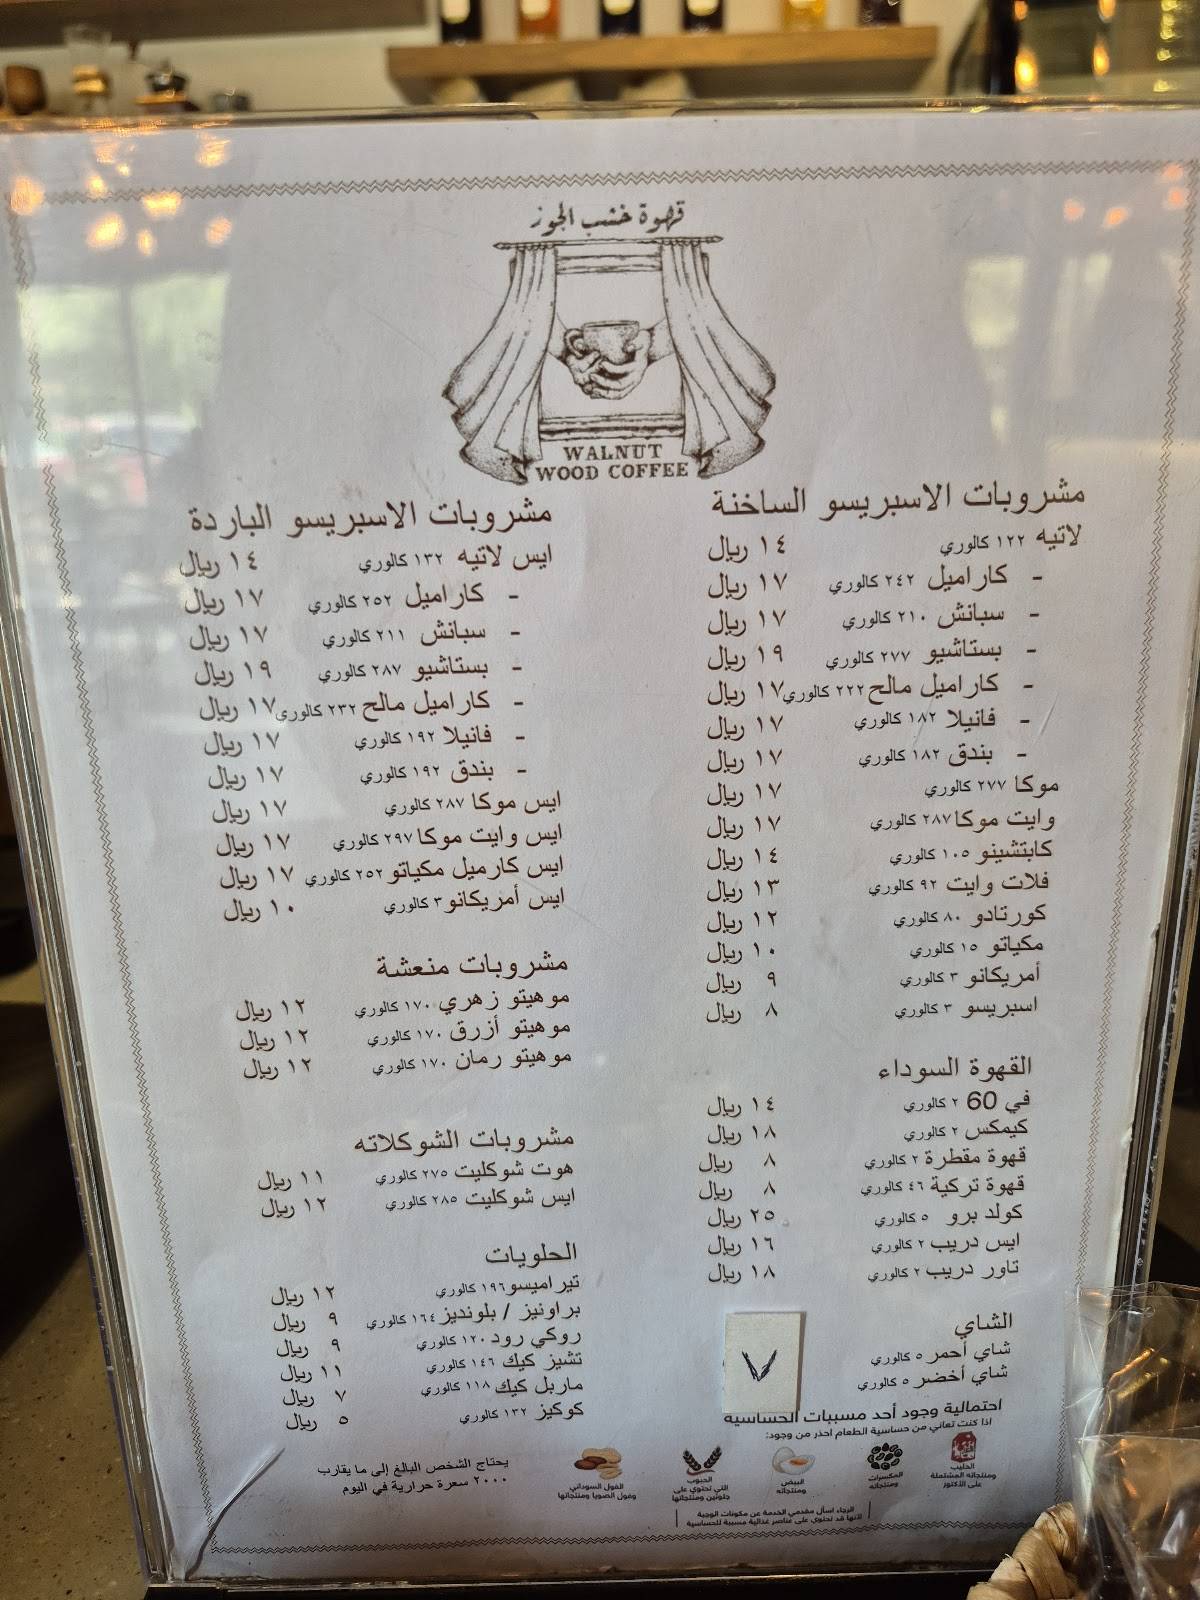 قهوة خشب الجوز
WALNUT
WOOD COFFEE
مشروبات الاسبريسو الساخنة
لاتيه ١٢٢ كالوري ١٤ ريال
- كاراميل ٢٤٢ كالوري ١٧ ريال
- سبانش ٢١٠ كالوري ١٧ ريال
- بستاشيو ٢٧٧ كالوري ١٩ ريال
- كاراميل مالح ٢٢٢ كالوري ١٧ ريال
- فانيلا ١٨٢ كالوري ١٧ ريال
- بندق ١٨٢ كالوري ١٧ ريال
موكا ٢٧٧ كالوري ١٧ ريال
وايت موكا ٢٨٧ كالوري ١٧ ريال
كابتشينو ١٠٥ كالوري ١٤ ريال
فلات وايت ٩٢ كالوري ١٣ ريال
كورتادو ٨٠ كالوري ١٢ ريال
مكياتو ١٥ كالوري ١٠ ريال
أمريكانو ٣ كالوري ٩ ريال
اسبريسو ٣ كالوري ٨ ريال
القهوة السوداء
في 60 ٢ كالوري ١٤ ريال
كيمكس ٢ كالوري ١٨ ريال
قهوة مقطرة ٢ كالوري ٨ ريال
قهوة تركية ٤٦ كالوري ٨ ريال
كولد برو ٥ كالوري ٢٥ ريال
ايس دريب ٢ كالوري ١٦ ريال
تاور دريب ٢ كالوري ١٨ ريال
الشاي
شاي أحمر ٥ كالوري
شاي أخضر ٥ كالوري
٧
مشروبات الاسبريسو الباردة
ايس لاتيه ١٣٢ كالوري ١٤ ريال
- كاراميل ٢٥٢ كالوري ١٧ ريال
- سبانش ٢١١ كالوري ١٧ ريال
- بستاشيو ٢٨٧ كالوري ١٩ ريال
- كاراميل مالح ٢٣٢ كالوري ١٧ ريال
- فانيلا ١٩٢ كالوري ١٧ ريال
- بندق ١٩٢ كالوري ١٧ ريال
ايس موكا ٢٨٧ كالوري ١٧ ريال
ايس وايت موكا ٢٩٧ كالوري ١٧ ريال
ايس كارميل مكياتو ٢٥٢ كالوري ١٧ ريال
ايس أمريكانو ٣ كالوري ١٠ ريال
مشروبات منعشة
موهيتو زهري ١٧٠ كالوري ١٢ ريال
موهيتو أزرق ١٧٠ كالوري ١٢ ريال
موهيتو رمان ١٧٠ كالوري ١٢ ريال
مشروبات الشوكلاته
هوت شوكليت ٢٧٥ كالوري ١١ ريال
ايس شوكليت ٢٨٥ كالوري ١٢ ريال
الحلويات
تيراميسو ١٩٦ كالوري ١٢ ريال
براونيز / بلونديز ١٦٤ كالوري ٩ ريال
روكي رود ١٢٠ كالوري ٩ ريال
تشيز كيك ١٤٦ كالوري ١١ ريال
ماربل كيك ١١٨ كالوري ٧ ريال
كوكيز ١٣٢ كالوري ٥ ريال
احتمالية وجود أحد مسببات الحساسية
اذا كنت تعاني من حساسية الطعام احذر من وجود:
الحليب
ومنتجاته المشتملة
على الأكتوز
المكسرات
ومنتجاته
البيض
ومنتجاته
الحبوب
التي تحتوي على
جلوتين ومنتجاتها
الفول السوداني
وفول الصويا ومنتجاتها
الرجاء اسأل مقدمي الخدمة عن مكونات الوجبة
لأنها قد تحتوي على عناصر غذائية مسببة للحساسية
يحتاج الشخص البالغ إلى ما يقارب
٢٠٠٠ سعرة حرارية في اليوم